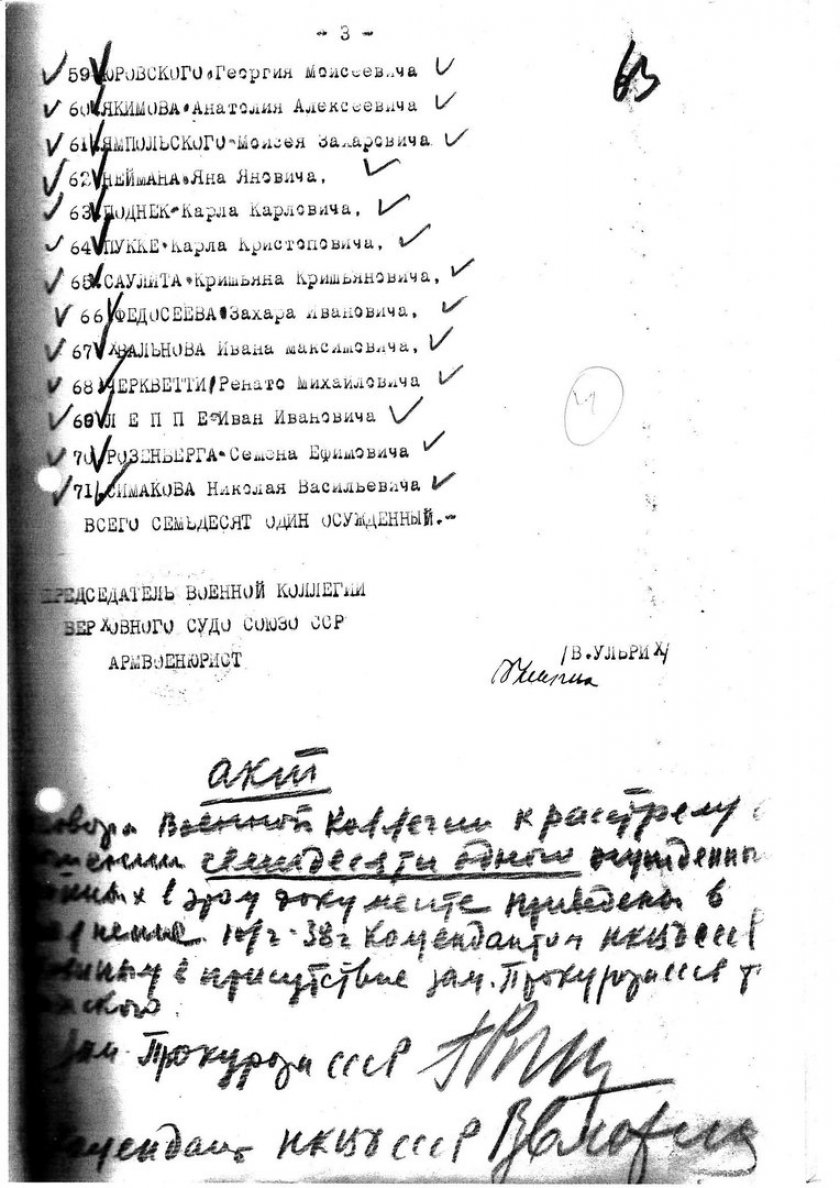 - 3 -
63
59 ЮРОВСКОГО Георгия Моисеевича
60 ЯКИМОВА Анатолия Алексеевича
61 ЯМПОЛЬСКОГО Моисея Захаровича
62 НЕЙМАНА Яна Яновича,
63 ПОДНЕК Карла Карловича,
64 ПУККЕ Карла Кристоповича,
65 САУЛИТА Кришьяна Кришьяновича,
66 ФЕДОСЕЕВА Захара Ивановича,
67 ХВАЛЬНОВА Ивана Максимовича,
68 ЧЕРКВЕТТИ Ренато Михайловича
69 Л Е П П Е Иван Ивановича
70 РОЗЕНБЕРГА Семена Ефимовича
71 СИМАКОВА Николая Васильевича
ВСЕГО СЕМЬДЕСЯТ ОДИН ОСУЖДЕННЫЙ.-
ПРЕДСЕДАТЕЛЬ ВОЕННОЙ КОЛЛЕГИИ
ВЕРХОВНОГО СУДО СОЮЗО ССР
АРМВОЕНЮРИСТ
/В.УЛЬРИХ/
Акт
Военной Коллегии к расстрелу
семидесяти одного осужденны
в этом документе приведены в
38г Комендантом НКВД СССР
в присутствие зам. Прокурора СССР т
зам Прокурора СССР
Комендант НКВД СССР